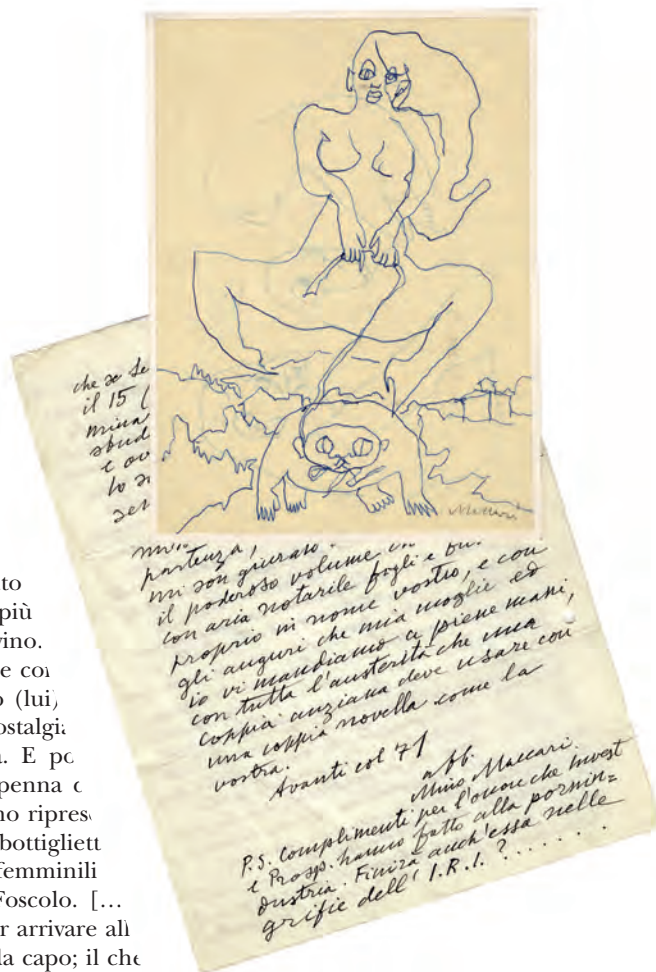 Maccari
che se
il 15
mina
sbud
e
lo
set
partenza,
mi son giurato
il poderoso volume
con aria notarile fogli e
proprio in nome vostro, e con
gli auguri che mia moglie ed
io vi mandiamo a piene mani,
con tutta l'austerità che una
coppia anziana deve usare con
una coppia novella come la
vostra.
Avanti col 71
aff.
Mino Maccari.
P.S. Complimenti per l'onore che Invest
e Prosp. hanno fatto alla pornin=
dustria. Finirà anch'essa nelle
grifie dell'I.R.I.? . . . . . .
to
più
vino.
e con
o (lui)
ostalgia
a. E po
penna
no ripres
bottigliett
femminili
Foscolo. [...
r arrivare all
da capo; il che